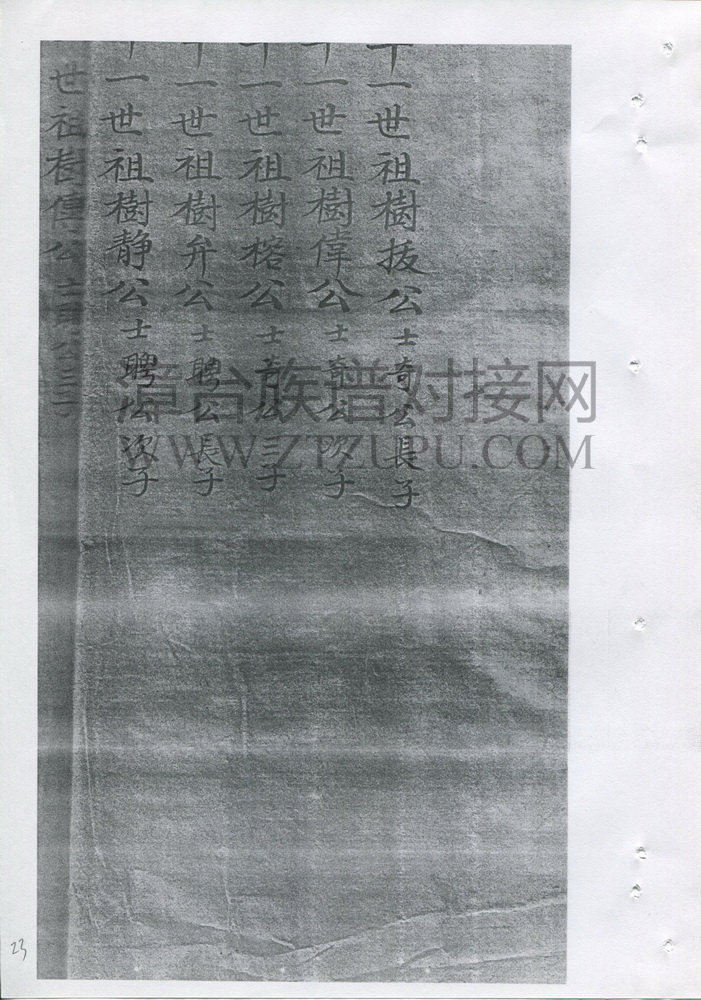 十一世祖樹拔公士奇公長子
十一世祖樹偉公士章公次子
十一世祖樹榕公士章公三子
十一世祖樹弁公士聘公長子
十一世祖樹静公士聘公次子
世祖樹公士聘公三子
章台族谱对接网
WWW.ZTZUPU.COM
23